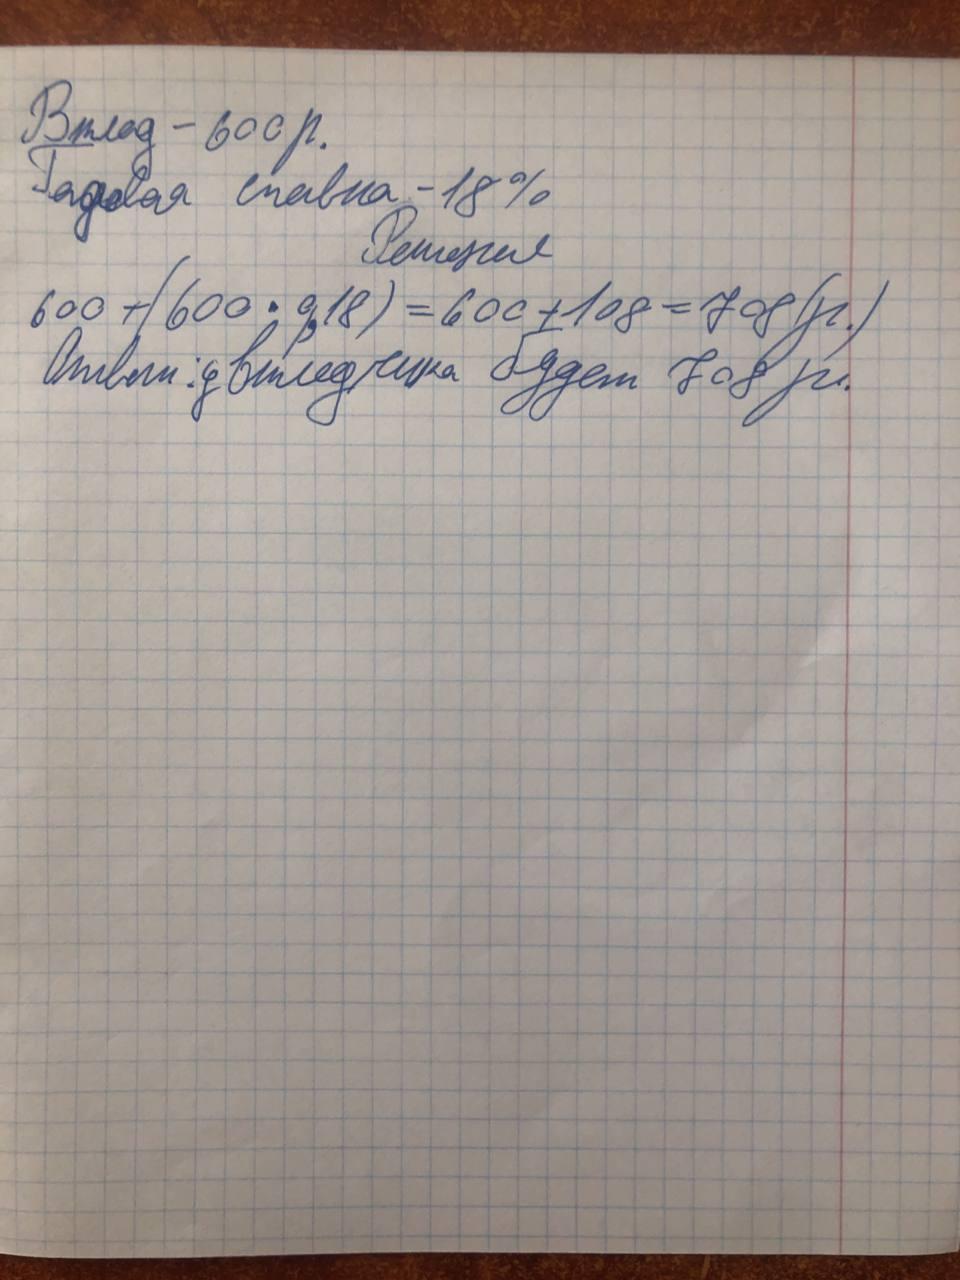 Вклад - 600 р.
Годовая ставка - 18%
Решение
600 + (600 · 0,18) = 600 + 108 = 708 (р.)
Ответ: у вкладчика будет 708 р.